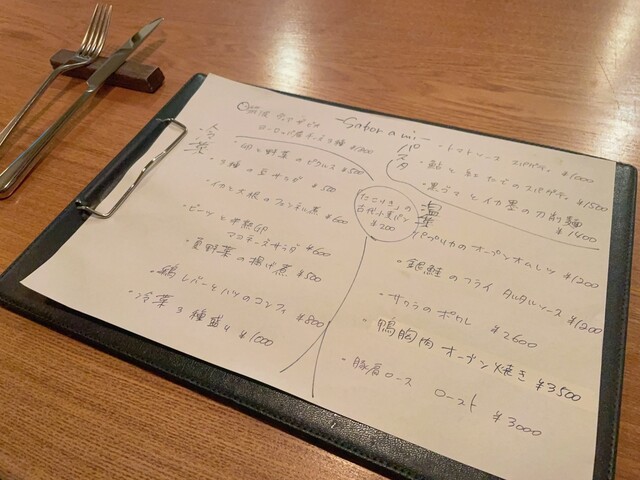 -Sabor a mi-
ヨーロッパ産チーズ3種 ¥1200
冷菜
・卵と野菜のピクルス ¥500
・3種の豆サラダ ¥500
・イカと大根のフェンネル煮 ¥600
・ビーツと半熟
マコモ ¥600
・夏野菜の揚げ煮 ¥500
・鶏レバーとハツのコンフィ ¥800
・冷菜3種盛り ¥1000
「たこりき」の
古代小麦パン
¥200
パスタ
・トマトソース スパゲティ ¥1000
・鮎と のスパゲティ ¥1500
・黒 とイカ墨の刀削麺
¥1400
温菜
パプリカのオープンオムレツ ¥1200
・銀鮭のフライ タルタルソース ¥1200
・サクラのポワレ ¥2600
・鴨胸肉 オーブン焼き ¥3500
・豚肩ロース ロースト ¥3000